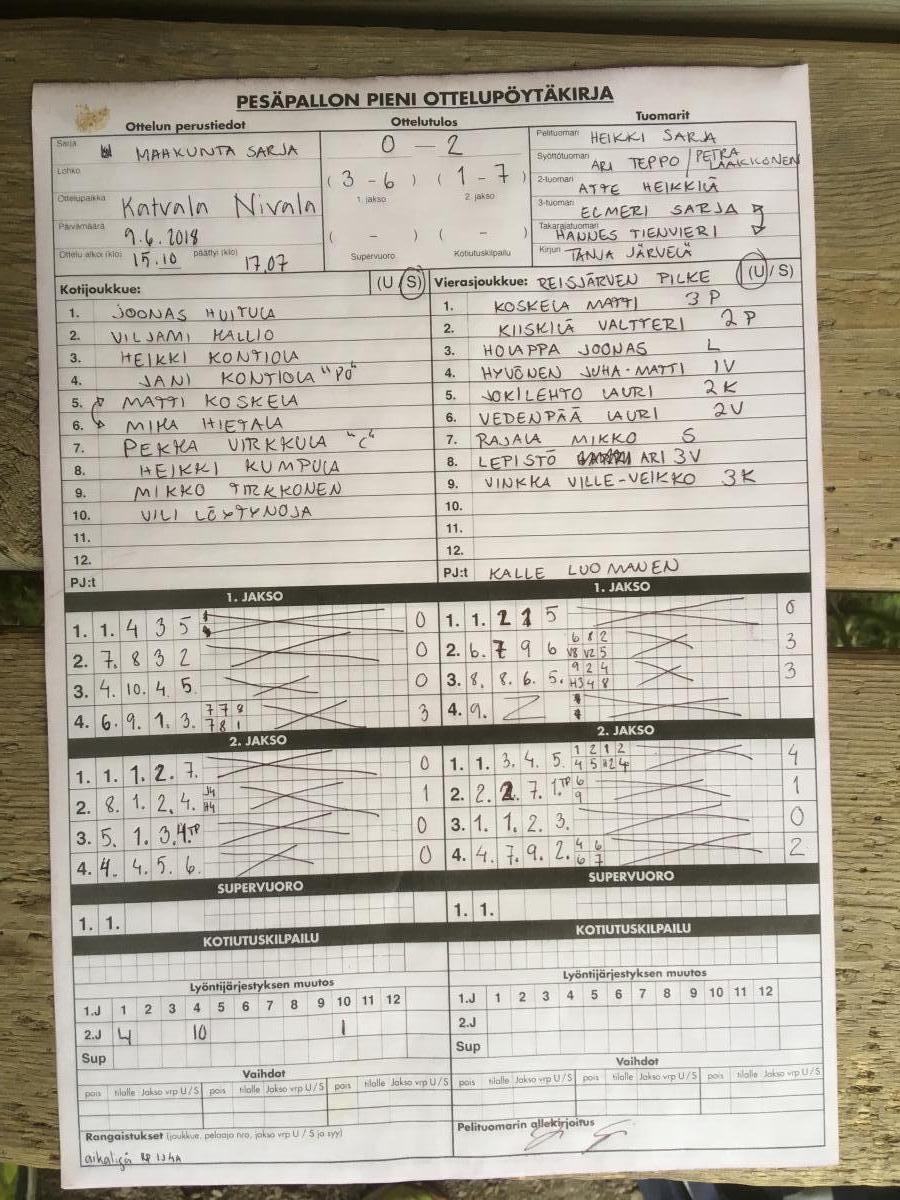 PESÄPALLON PIENI OTTELUPÖYTÄKIRJA
Ottelun perustiedot
Sarja MAAKUNTA SARJA
Lohko
Ottelupaikka Katvala Nivala
Päivämäärä 9.6.2018
Ottelu alkoi (klo) 15.10 päättyi (klo) 17.07
Ottelutulos
0 - 2
( 3 - 6 ) ( 1 - 7 )
1. jakso 2. jakso
( - ) ( - )
Supervuoro Kotiutuskilpailu
Tuomarit
Pelituomari HEIKKI SARJA
Syöttötuomari ARI TEPPO / PETRA LAAKKONEN
2-tuomari ATTE HEIKKILÄ
3-tuomari ELMERI SARJA
Takarajatuomari HANNES TIENVIERI
Kirjuri TANJA JÄRVELÄ
Kotijoukkue: (U / S)
1. JOONAS HUITULA
2. VILJAMI KALLIO
3. HEIKKI KONTIOLA
4. JANI KONTIOLA "PO"
5. MATTI KOSKELA
6. MIKA HIETALA
7. PEKKA VIRKKULA "C"
8. HEIKKI KUMPULA
9. MIKKO TIRKKONEN
10. VILI LÖYTYNOJA
11.
12.
PJ:t
Vierasjoukkue: REISJÄRVEN PILKE (U / S)
1. KOSKELA MATTI 3P
2. KIISKILÄ VALTTERI 2P
3. HOLAPPA JOONAS L
4. HYVÖNEN JUHA-MATTI 1V
5. JOKILEHTO LAURI 2K
6. VEDENPÄÄ LAURI 2V
7. RAJALA MIKKO S
8. LEPISTÖ ARI 3V
9. VINKKA VILLE-VEIKKO 3K
10.
11.
12.
PJ:t KALLE LUOMANEN
1. JAKSO
1. 1. 4 3 5 0
2. 7. 8 3 2 0
3. 4. 10. 4. 5. 0
4. 6. 9. 1. 3. 7 7 8 3
7 8 1
2. JAKSO
1. 1. 1. 2. 7. 0
2. 8. 1. 2. 4. J4 1
H4
3. 5. 1. 3. 4. TP 0
4. 4. 4. 5. 6. 0
SUPERVUORO
1. 1.
KOTIUTUSKILPAILU
Lyöntijärjestyksen muutos
1.J 1 2 3 4 5 6 7 8 9 10 11 12
2.J 4 10 1
Sup
Vaihdot
pois tilalle Jakso vrp U / S pois tilalle Jakso vrp U / S pois tilalle Jakso vrp U / S
Rangaistukset (joukkue, pelaaja nro, jakso vrp U / S ja syy)
aikalisä RP 1J4A
1. JAKSO
1. 1. 1. 2 1 5 0
2. 6. 7 9 6 6 8 2 3
V8 V2 5
3. 8. 8. 6. 5. 9 2 4 3
H3 4 8
4. 9.
2. JAKSO
1. 1. 3. 4. 5. 1 2 1 2 4
4 5 H2 4
2. 2. 2. 7. 1. TP 6 1
9
3. 1. 1. 2. 3. 0
4. 4. 7. 9. 2. 4 6 2
6 7
SUPERVUORO
1. 1.
KOTIUTUSKILPAILU
Lyöntijärjestyksen muutos
1.J 1 2 3 4 5 6 7 8 9 10 11 12
2.J
Sup
Vaihdot
pois tilalle Jakso vrp U / S pois tilalle Jakso vrp U / S pois tilalle Jakso vrp U / S
Pelituomarin allekirjoitus